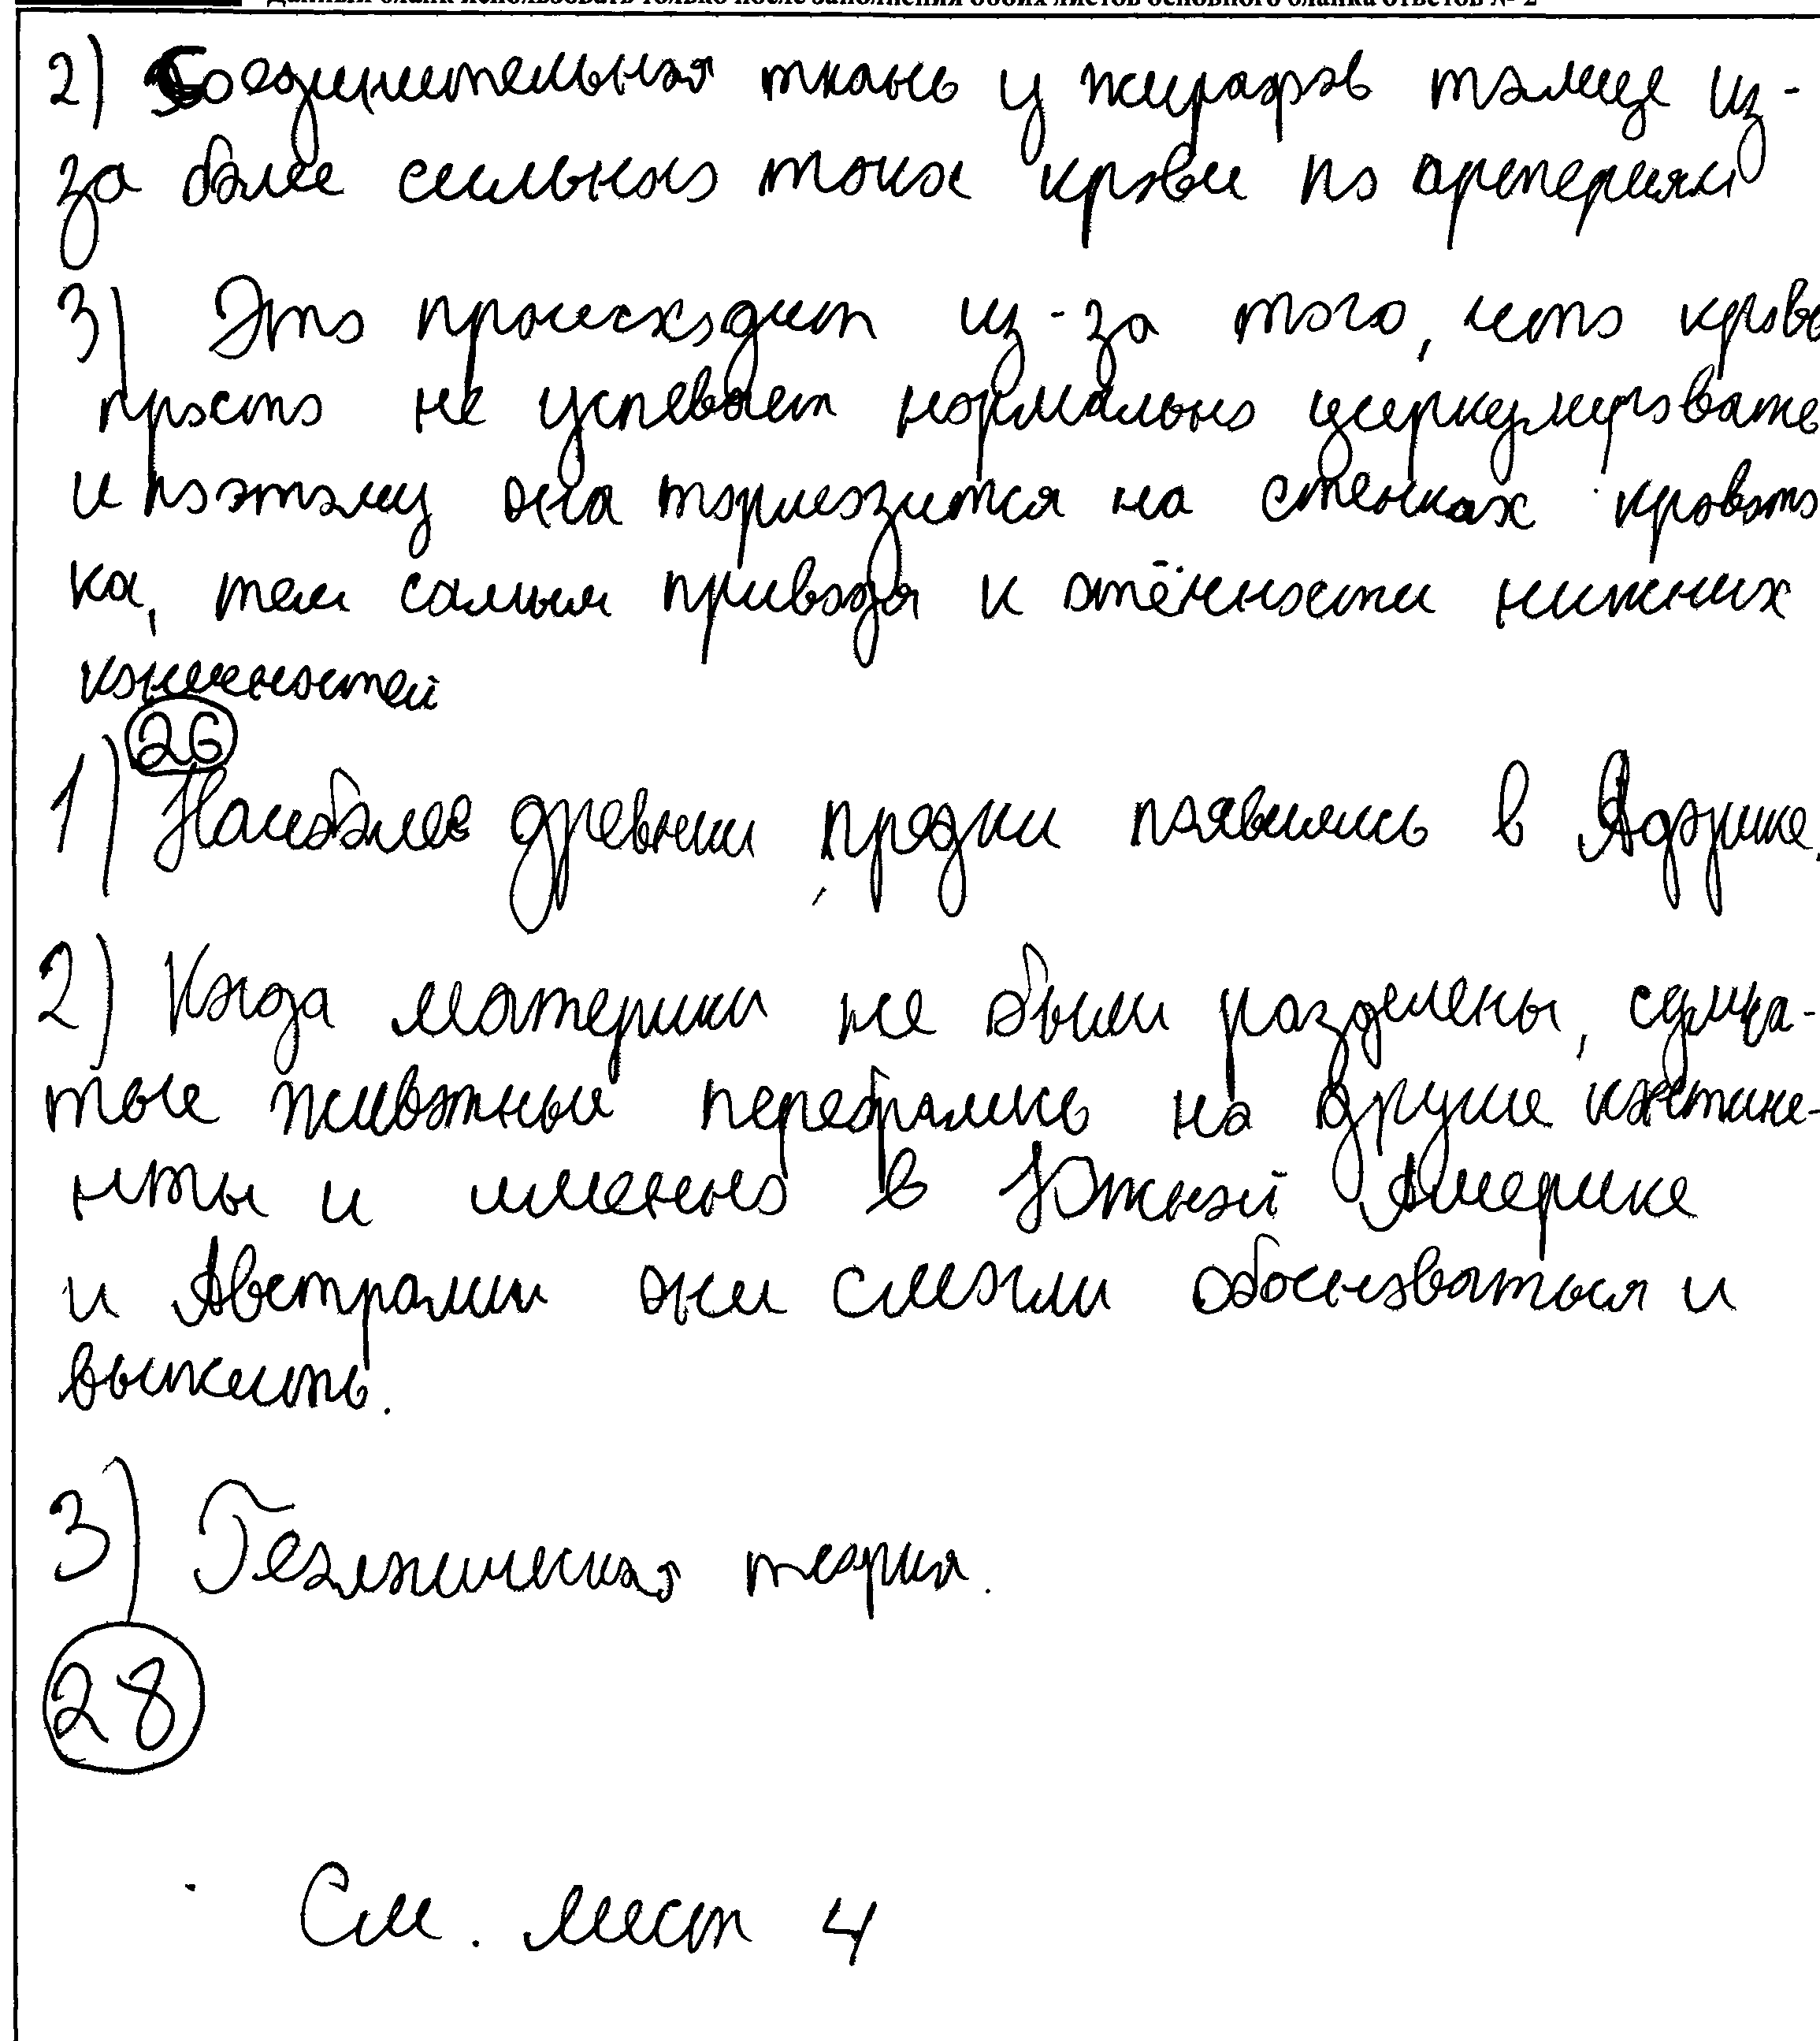 Данный бланк использовать только после заполнения обоих листов основного бланка ответов № 2
2) Соединительная ткань у жирафов толще из-
за более сильного тока крови по артериям
3) Это происходит из-за того, что кровь
просто не успевает нормально циркулировать
и поэтому она тормозится на стенках кровото
ка, тем самым приводя к отёчности нижних
конечностей
26
1) Наиболее древнии предки появились в Африке.
2) Когда материки не были разделены, сумча-
тые животные перебрались на другие контине-
нты и именно в Южной Америке
и Австралии они смогли обосноваться и
выжить.
3) Геологическая теория.
28
См. лист 4